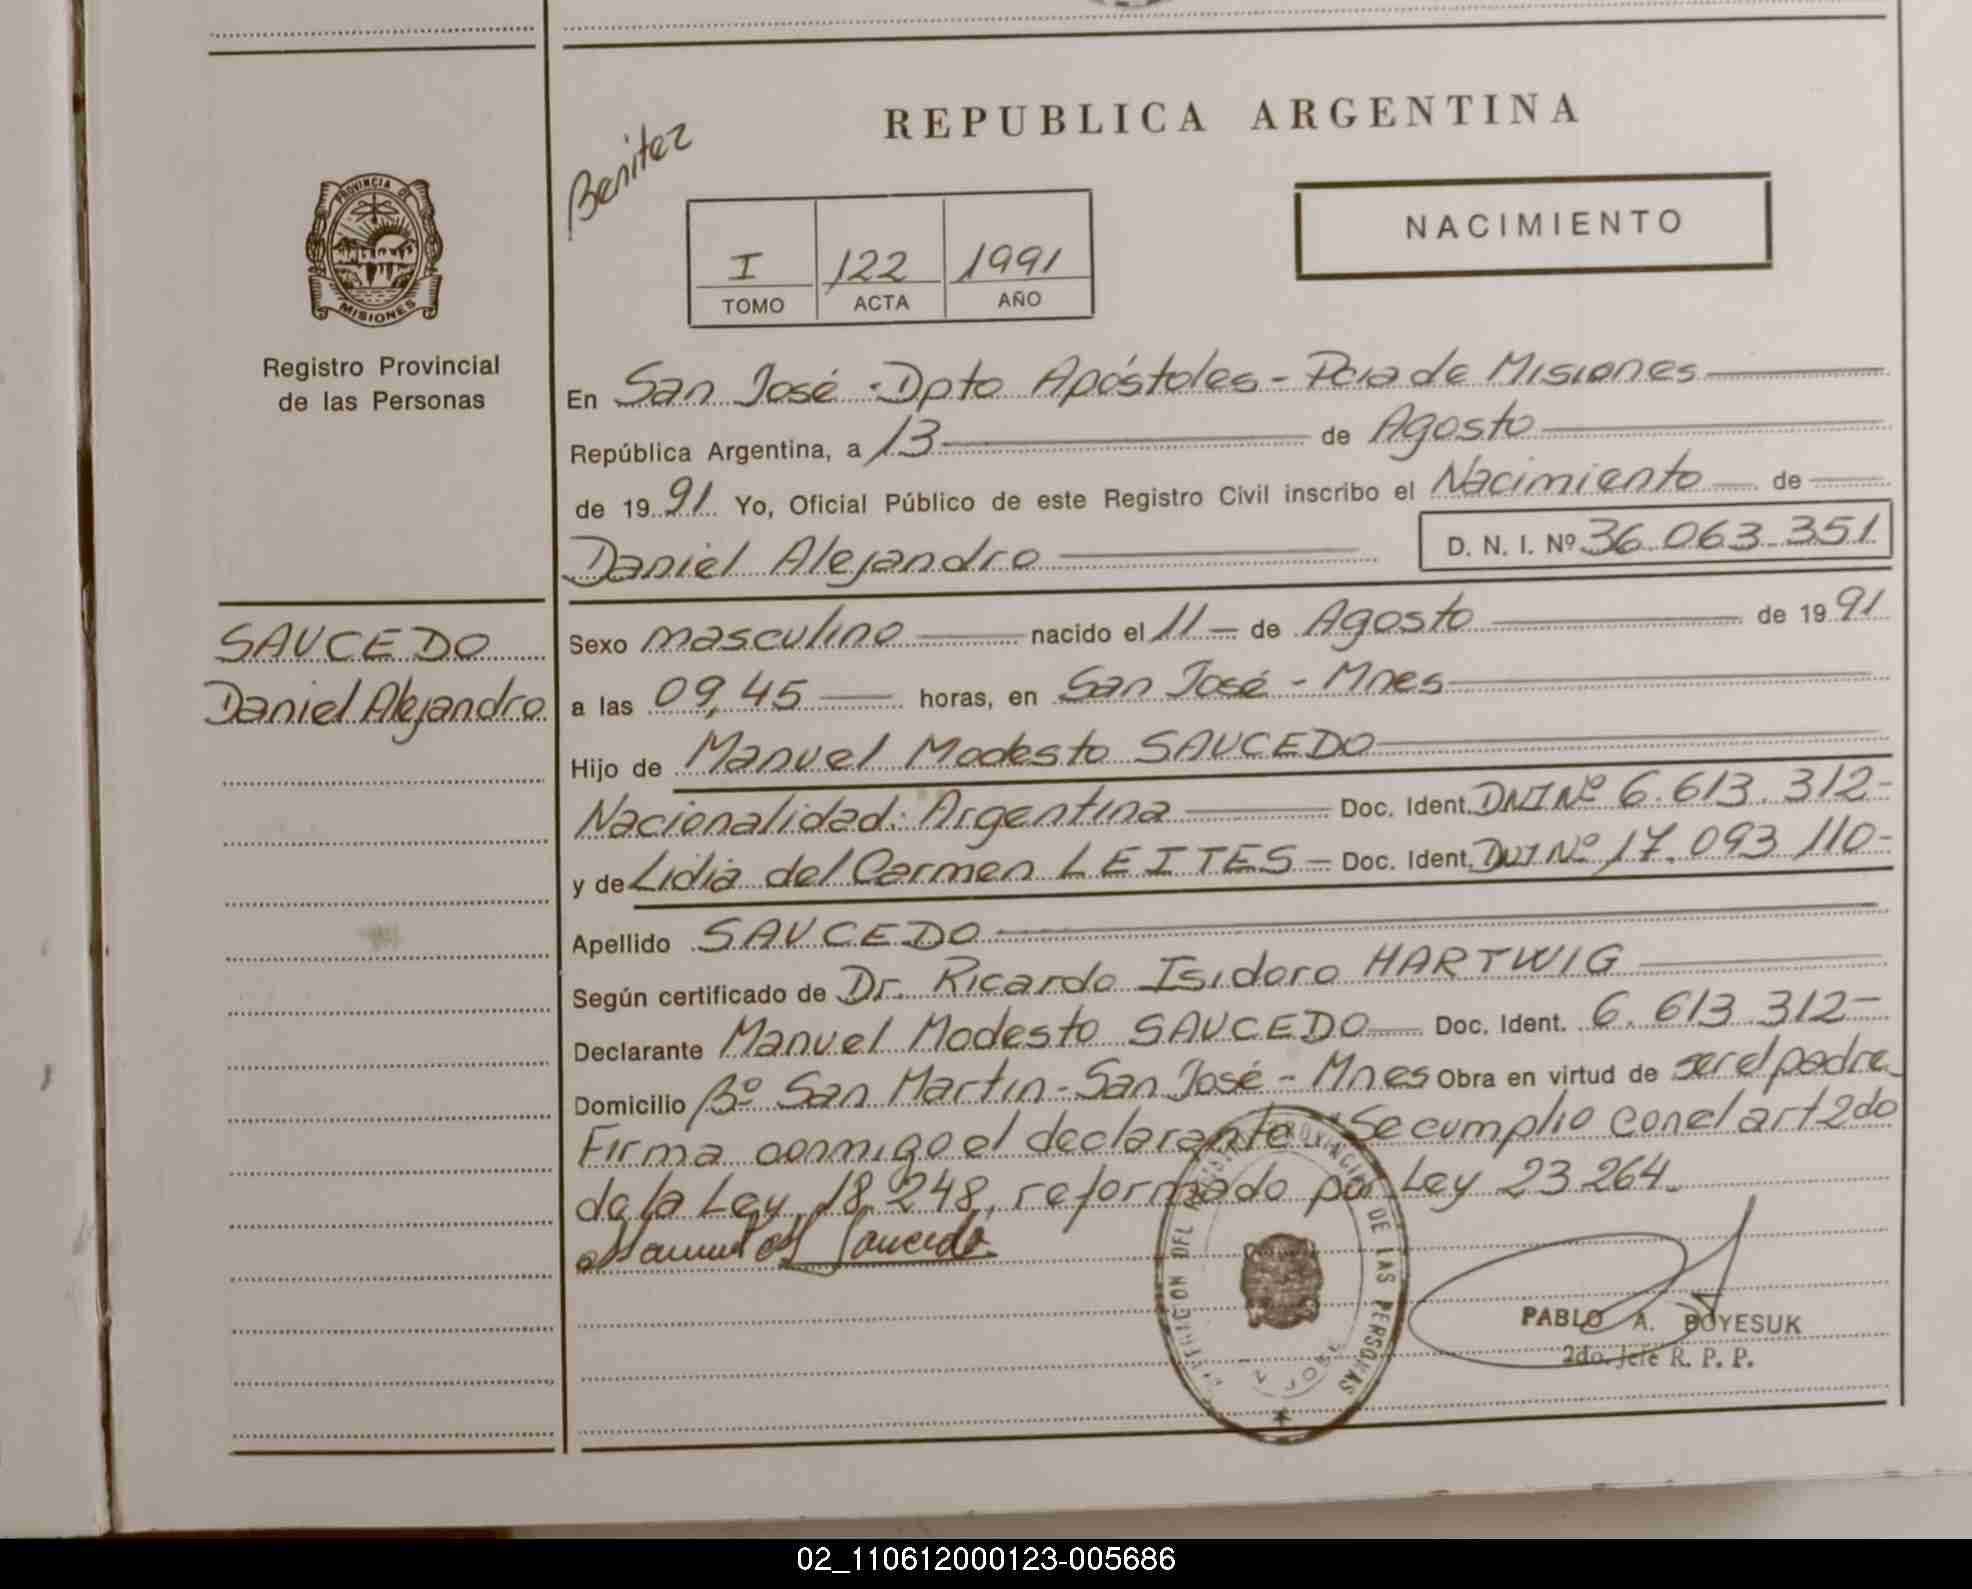 Benitez
REPUBLICA ARGENTINA
NACIMIENTO
I 122 1991
TOMO ACTA AÑO
PROVINCIA DE MISIONES
Registro Provincial
de las Personas
En San José - Dpto Apóstoles - Pcia de Misiones
República Argentina, a 13 de Agosto
de 1991 Yo, Oficial Público de este Registro Civil inscribo el Nacimiento de
Daniel Alejandro D. N. I. Nº 36.063.351
SAUCEDO
Daniel Alejandro
Sexo masculino nacido el 11 - de Agosto de 1991
a las 09,45 horas, en San José - Mnes
Hijo de Manuel Modesto SAUCEDO
Nacionalidad: Argentina Doc. Ident. DNI Nº 6.613.312-
y de Lidia del Carmen LEITES - Doc. Ident. DNI Nº 17.093.110-
Apellido SAUCEDO
Según certificado de Dr. Ricardo Isidoro HARTWIG
Declarante Manuel Modesto SAUCEDO Doc. Ident. 6.613.312-
Domicilio Bº San Martin - San José - Mnes Obra en virtud de ser el padre
Firma conmigo el declarante. Se cumplio con el art 2do
de la Ley 18.248, reformado por Ley 23.264.
Manuel M Saucedo
DEL REGISTRO PROVINCIAL DE LAS PERSONAS
JOSE
PABLO A. BOYESUK
2do. Jefe R. P. P.
02_110612000123-005686